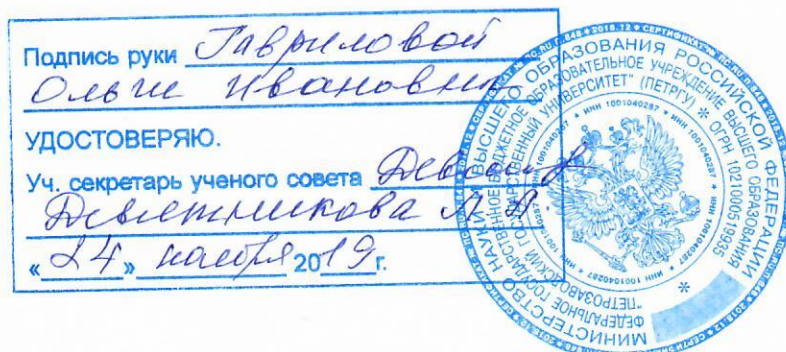 Подпись руки Гавриловой
Ольги Ивановны
УДОСТОВЕРЯЮ.
Уч. секретарь ученого совета
Девятникова Л А
«24» ноября 2019 г.
МИНИСТЕРСТВО НАУКИ И ВЫСШЕГО ОБРАЗОВАНИЯ РОССИЙСКОЙ ФЕДЕРАЦИИ
ФЕДЕРАЛЬНОЕ ГОСУДАРСТВЕННОЕ БЮДЖЕТНОЕ ОБРАЗОВАТЕЛЬНОЕ УЧРЕЖДЕНИЕ ВЫСШЕГО ОБРАЗОВАНИЯ
"ПЕТРОЗАВОДСКИЙ ГОСУДАРСТВЕННЫЙ УНИВЕРСИТЕТ" (ПЕТРГУ) * ОГРН 1021000519935
* ИНН 1001040287 * ИНН 1001040287 * ИНН 1001040287